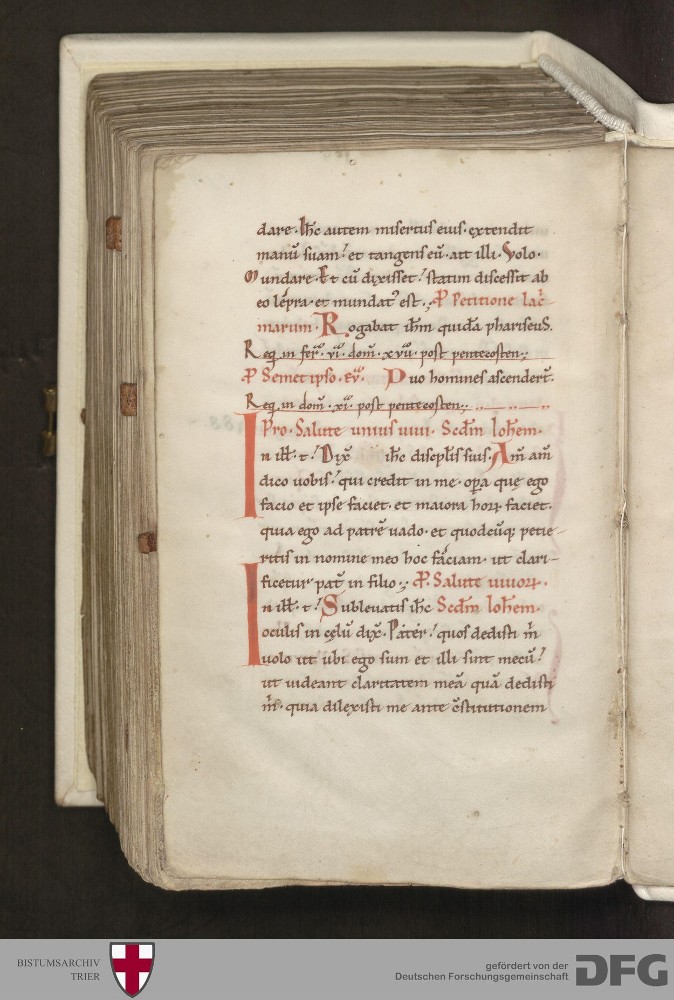 dare. Ihc autem misertus eius. extendit
manū suam! et tangens eū. ait illi. Volo.
Mundare. Et cū dixisset! statim discessit ab
eo lepra. et mundat᷒ est. P Petitione lac̄
marum. Rogabat ihm quidā phariseus.
Req. in fer. vi. dom. xvii. post pentecosten.
P Semet ipso. ev̄. Duo homines ascender̄t.
Req. in dom. xi. post pentecosten.
Pro Salute unius vivi. Scdm Iohem.
In ill. t. Dix̄ ihc discplis suis. Am̄ am̄
dico uobis! qui credit in me. opa que ego
facio et ipse faciet. et maiora horꝝ faciet.
quia ego ad patrē uado. et quodcūq; petie-
ritis in nomine meo hoc faciam. ut clari-
ficetur pat̄ in filio. P. Salute vivorꝝ.
In ill. t. Subleuatis ihc Scdm Iohem.
oculis in cęlū dix̄. Pater! quos dedisti m̄
uolo ut ubi ego sum et illi sint mecū!
ut uideant claritatem meā quā dedisti
m̄. quia dilexisti me ante c̄stitutionem
BISTUMSARCHIV
TRIER
gefördert von der
Deutschen Forschungsgemeinschaft
DFG